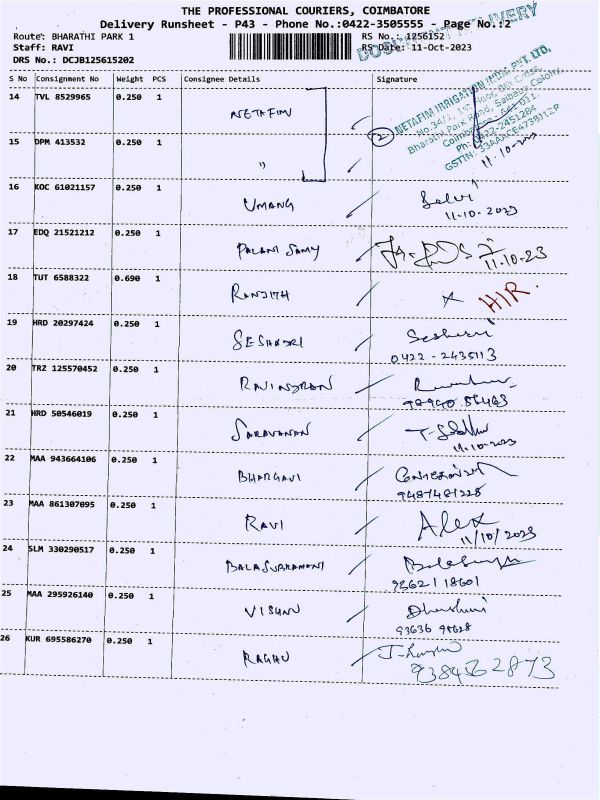 THE PROFESSIONAL COURIERS, COIMBATORE
Delivery Runsheet - P43 - Phone No.:0422-3505555 - Page No.:2
Route: BHARATHI PARK 1
RS No.: 1256152
Staff: RAVI
RS Date: 11-Oct-2023
DRS No.: DCJB125615202
DELIVERY
S No Consignment No Weight PCS Consignee Details Signature
14 TVL 8529965 0.250 1 NETAFIM
NETAFIM IRRIGATION INDIA PVT. LTD.
15 DPM 413532 0.250 1 "
2
11-10-2023
16 KOC 61021157 0.250 1 UMANG
Selvi
11-10-2023
17 EDQ 21521212 0.250 1 PALANI SAMY
11-10-23
18 TUT 6588322 0.690 1 RANJITH
x HIR.
19 HRD 20297424 0.250 1 SESHADRI
0422-2435113
20 TRZ 125570452 0.250 1 RAVINDRAN
21 HRD 50546019 0.250 1 SARAVANAN
11-10-2023
22 MAA 943664106 0.250 1 BHARGAVI
9487481228
23 MAA 861307095 0.250 1 RAVI
Alex
11/10/2023
24 SLM 330290517 0.250 1 BALASUBRAMANI
25 MAA 295926140 0.250 1 VISHNU
Dharshini
26 KUR 695586270 0.250 1 RAGHU
9384562873